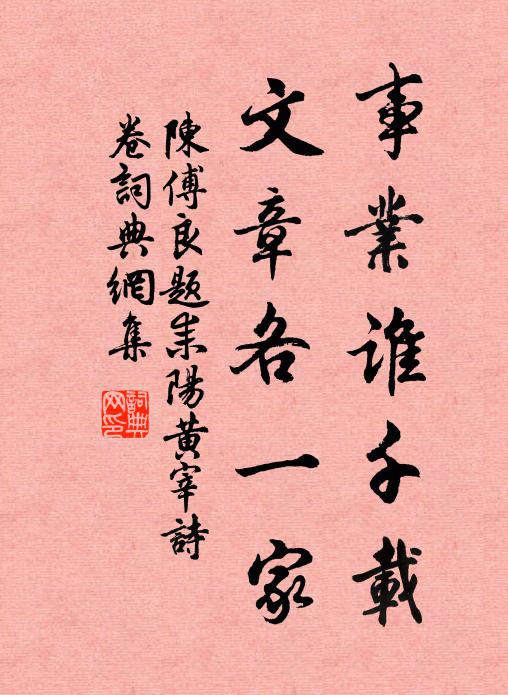 事業誰千載
文章各一家
陳傅良題耒陽黃宰詩
卷詞典網集
詞典网印